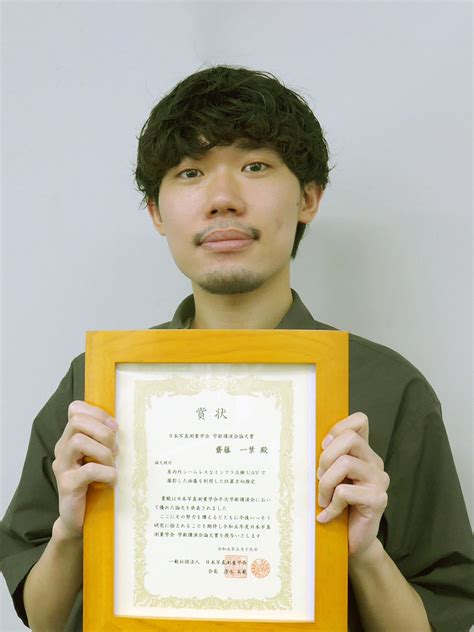 賞状
日本写真測量学会 学術講演会論文賞
齋藤 一葉 殿
論文題目
屋内外シームレスなインフラ点検UAVで
撮影した画像を利用した位置方向推定
貴殿は日本写真測量学会年次学術講演会におい
て優れた論文を発表されました
ここにその努力を讃えるとともに今後いっそう
研究に励まれることを期待し令和五年度日本写真
測量学会 学術講演会論文賞を授与いたします
一般社団法人 日本写真測量学会
会長